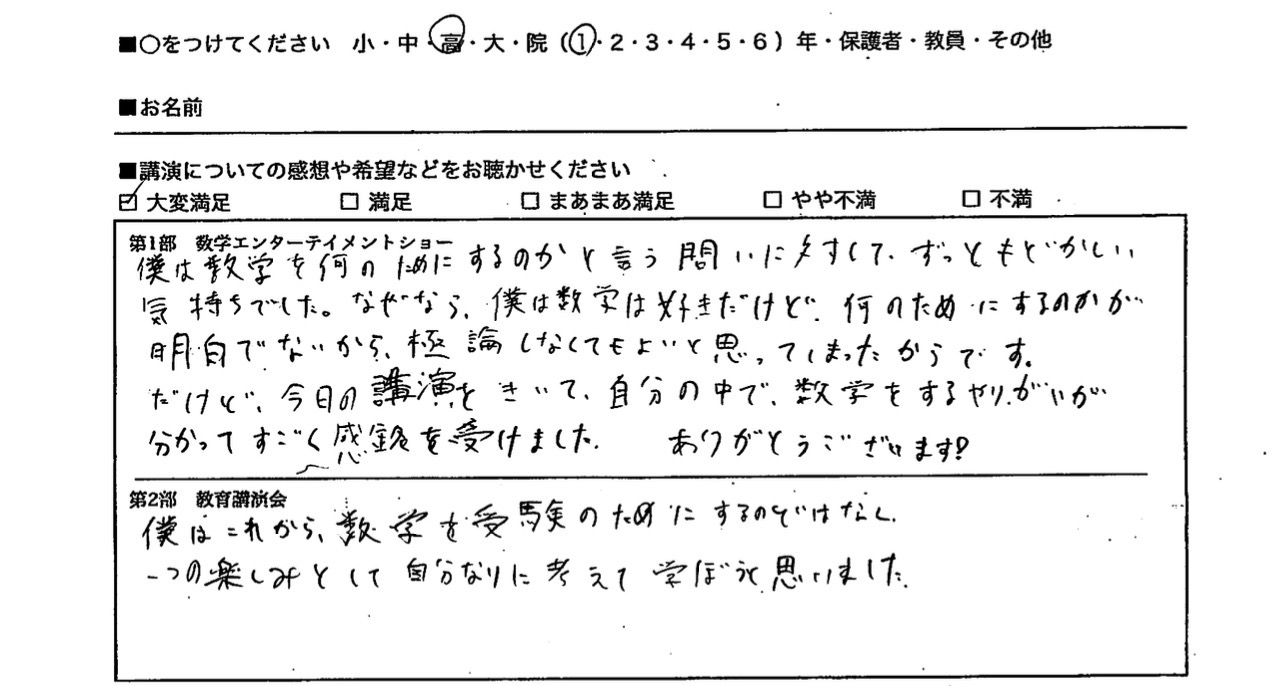 ■○をつけてください 小・中・高・大・院（1・2・3・4・5・6）年・保護者・教員・その他
■お名前
■講演についての感想や希望などをお聴かせください
☑ 大変満足 □ 満足 □ まあまあ満足 □ やや不満 □ 不満
第1部 数学エンターテイメントショー
僕は数学を何のためにするのかと言う問いに対して、ずっともどかしい
気持ちでした。なぜなら、僕は数学は好きだけど、何のためにするのかが
明白でないから、極論しなくてもよいと思ってしまったからです。
だけど、今日の講演をきいて、自分の中で、数学をするやりがいが
分かってすごく感銘を受けました。 ありがとうございます!
第2部 教育講演会
僕はこれから、数学を受験のためにするのではなく、
一つの楽しみとして自分なりに考えて学ぼうと思いました。